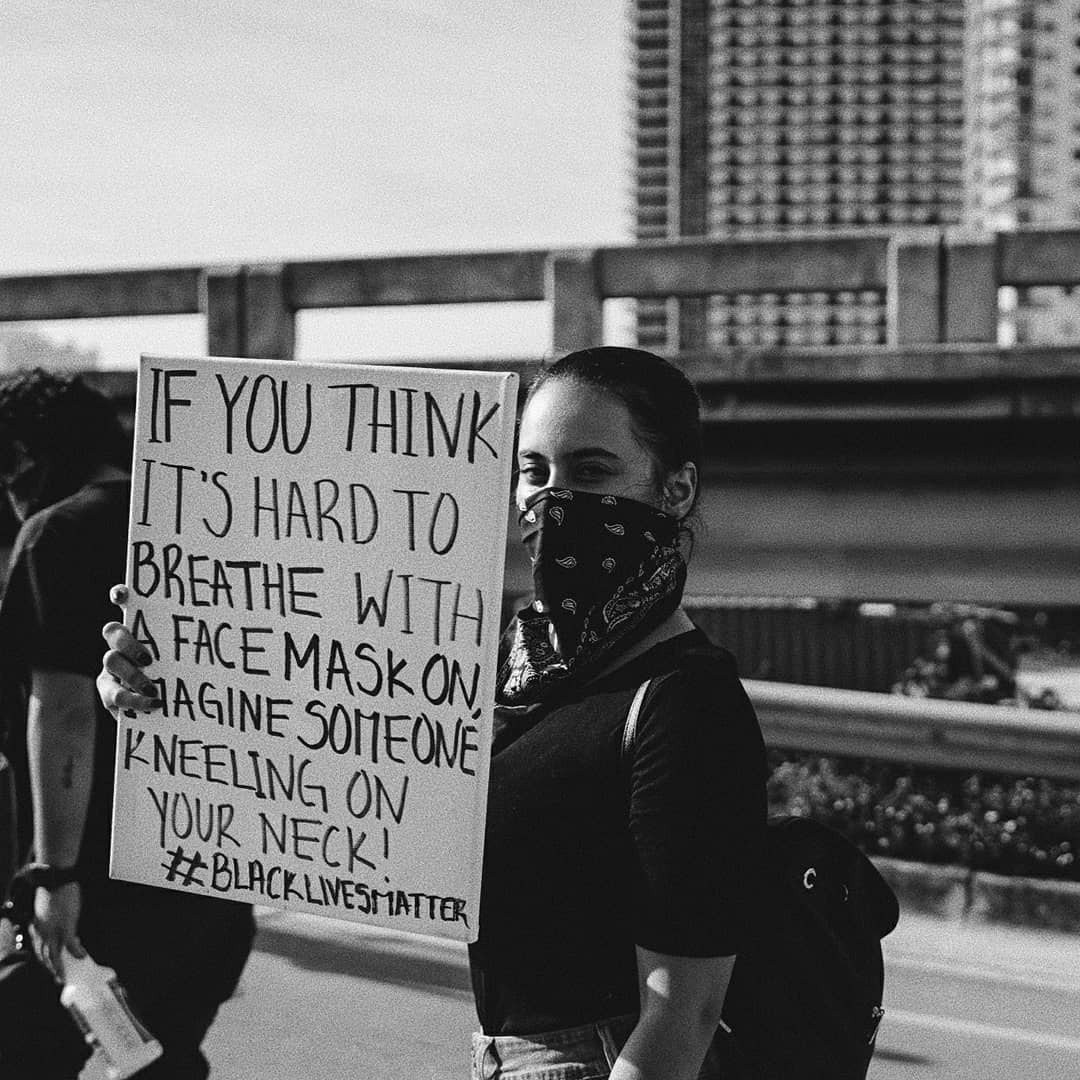 IF YOU THINK
IT'S HARD TO
BREATHE WITH
A FACE MASK ON,
IMAGINE SOMEONE
KNEELING ON
YOUR NECK!
#BLACKLIVESMATTER